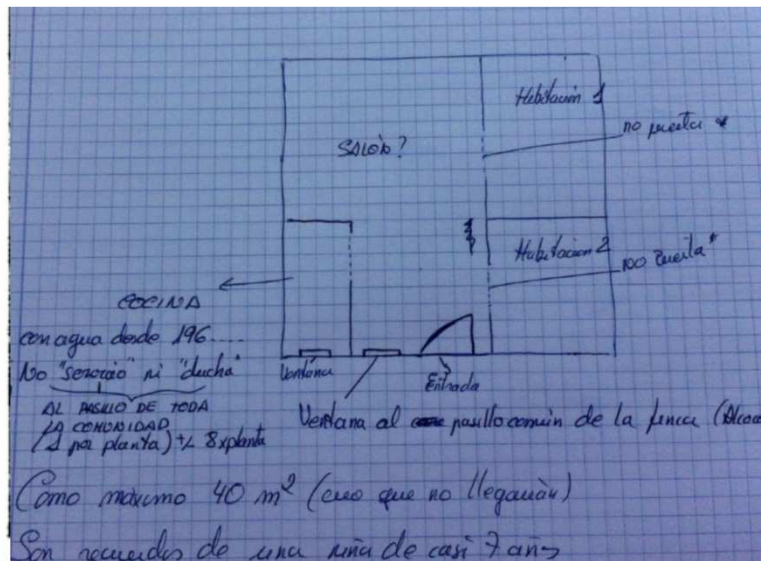 Habitación 1
no puerta *
SALÓN?
Habitación 2
no puerta *
COCINA
con agua desde 196....
No "servicio" ni "ducha"
AL PASILLO DE TODA
LA COMUNIDAD
(1 por planta) +/- 8 x planta
Ventana
Entrada
Ventana al pasillo común de la finca
Como máximo 40 m² (creo que no llegarían)
Son recuerdos de una niña de casi 7 años